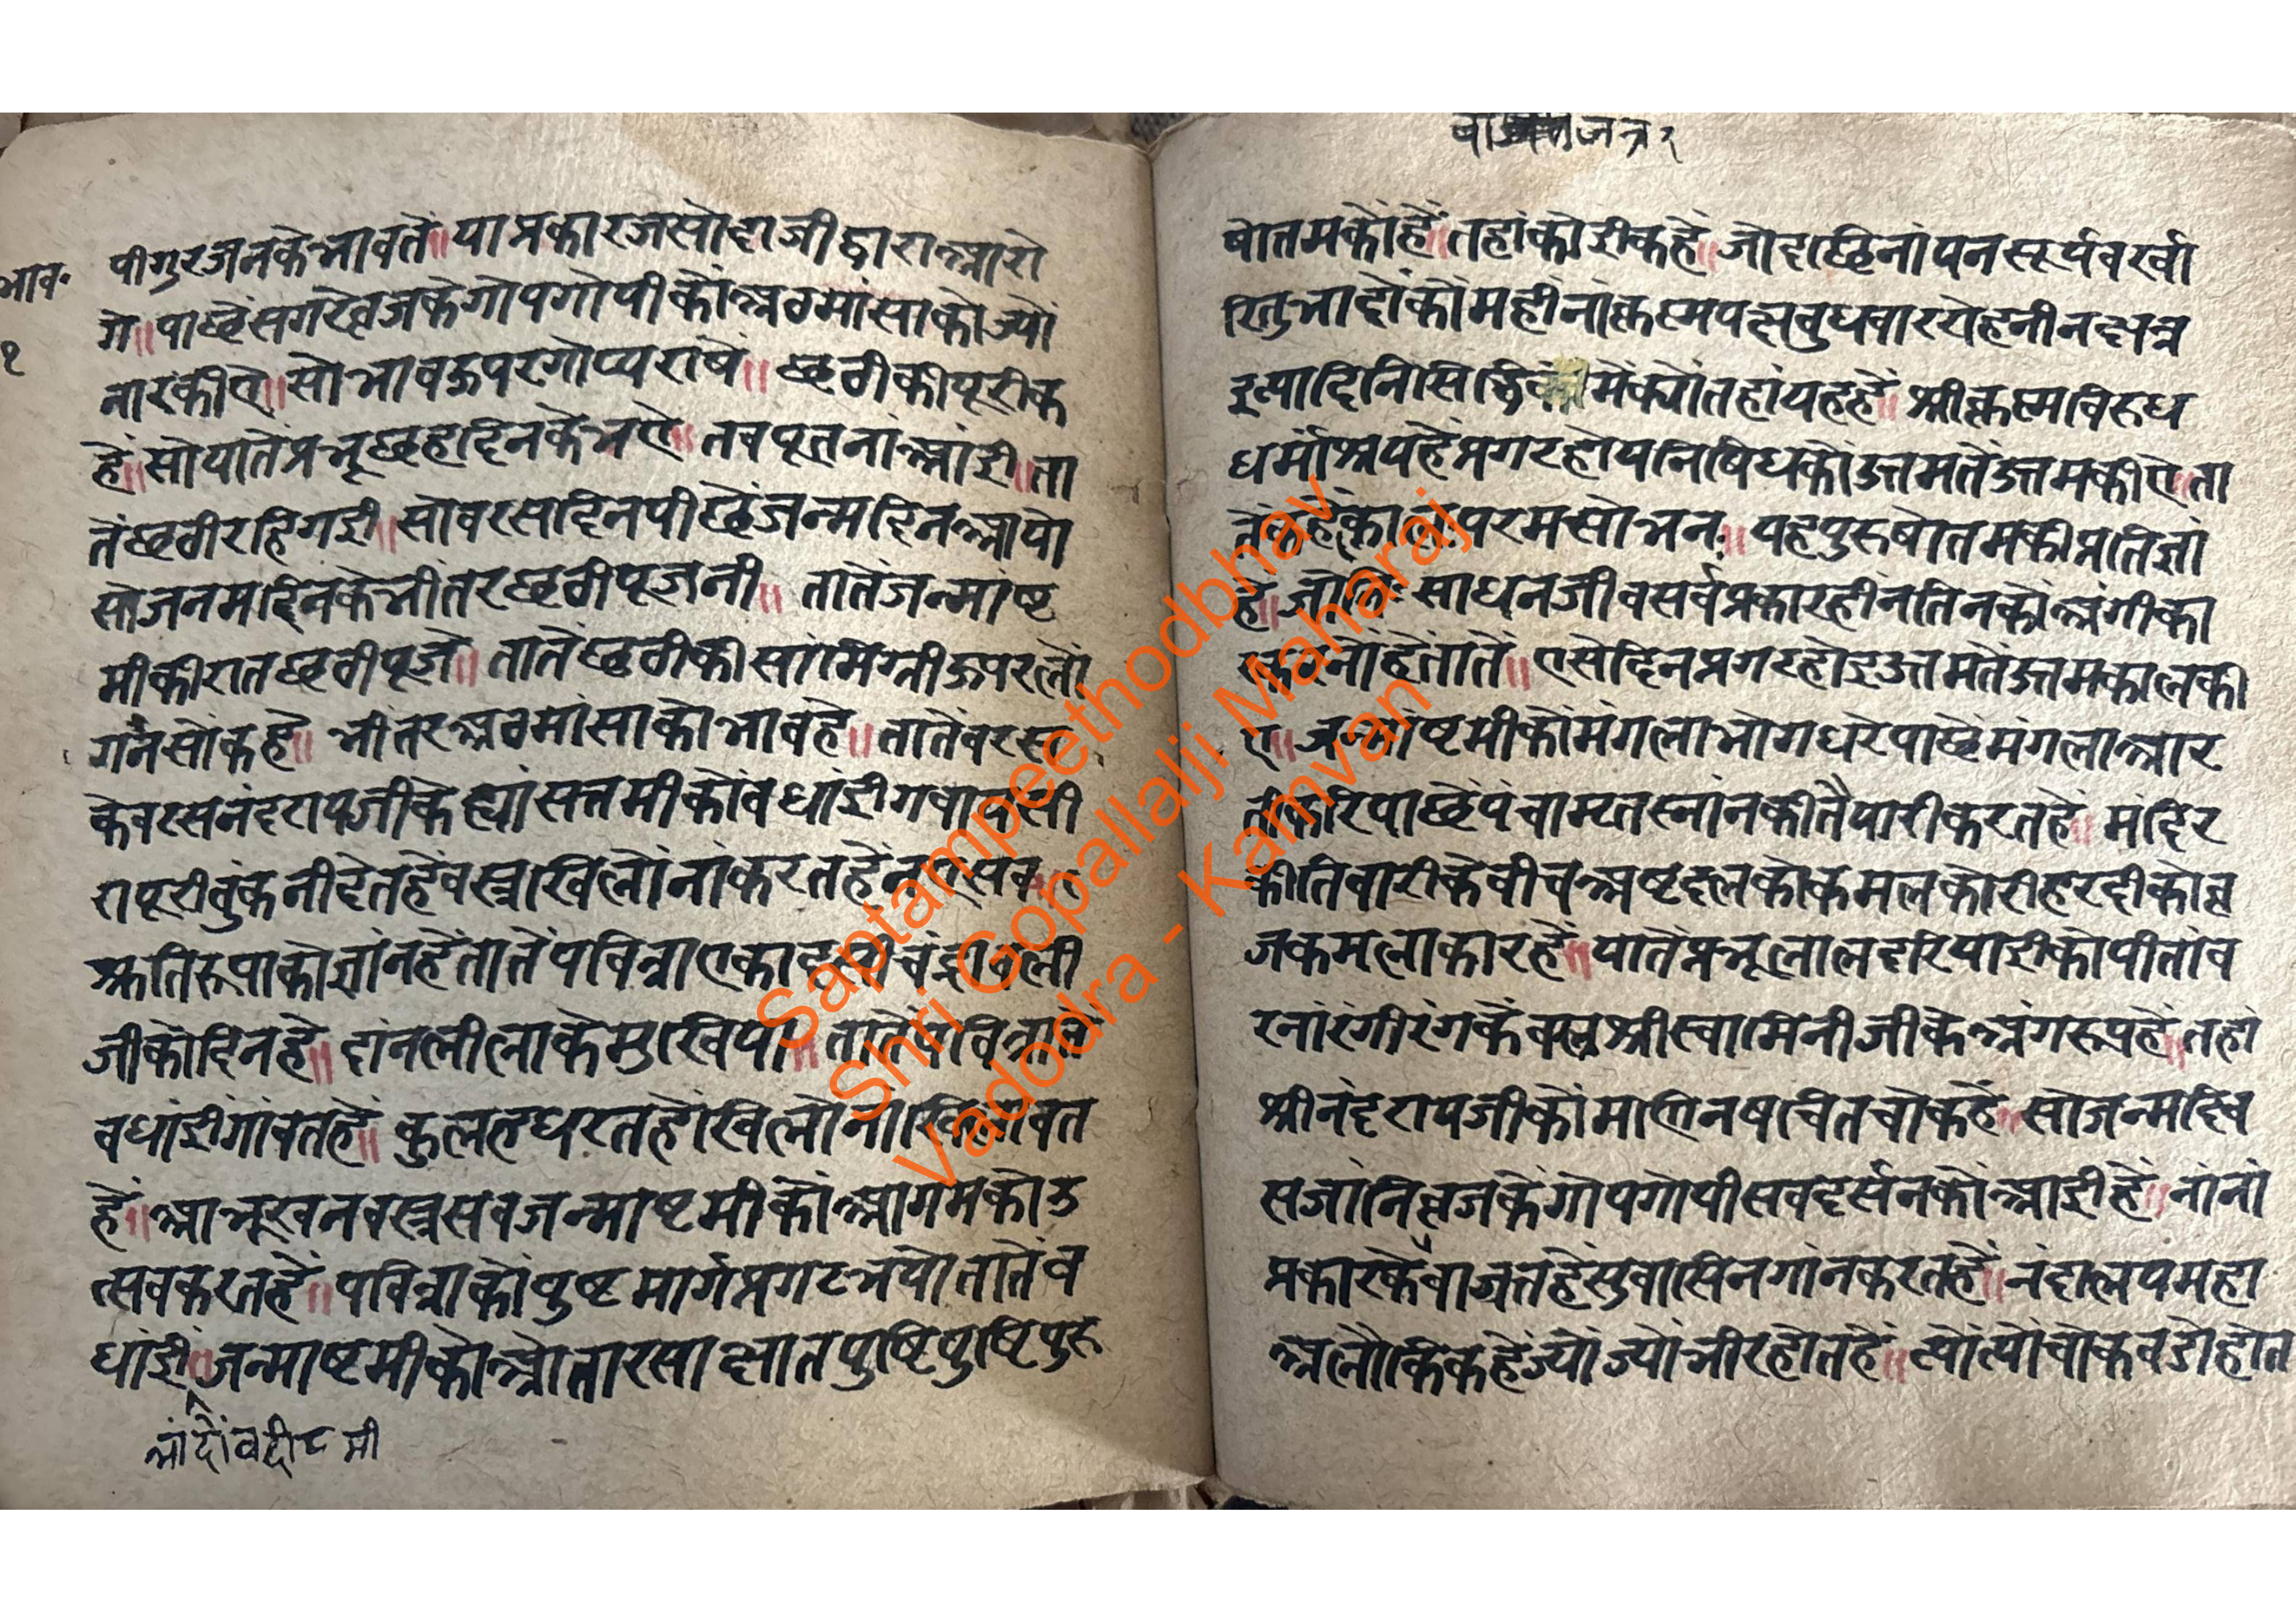 भाव॰
१
पीगुरजनकेभावतें॥याप्रकारजसोदाजीद्वाराआरो
गे॥पाछेंसगरेव्रजकेगोपगोपीकोंआठमांसाकोज्यों
नारकीए॥सोभावऊपरगोप्यराषें॥छठीकीपूरीक
हें॥सोयातेंप्रभूछहदिनकेभऐ॥तवपूतनांआंई॥ता
तेंछठीरहिगई॥सोवरसदिनपीछेंजन्मदिनआयो
सोजनमदिनकेभीतरछठीपूजनी॥तातेंजन्माष्ट
मीकीरातछठीपूजें॥तातेंछठीकीसांमिग्रीऊपरलों
गनसोंकहें॥भीतरआठमांसाकोभावहे॥तातेंवरस
केवरसनंदरायजीकेह्यांसत्तमीकोंवधांईगवायसी
रापूरीवुंकनीदेतहेंवस्त्रखिलोंनांकरतहें
श्रुतिरूपाकोग्यांनहेंतातेंपवित्राएकादशीचंद्रावली
जीकोदिनहे॥दांनलीलाकेमुखिया॥तातेंपवित्राते
वधांईगांवतहें॥कुलहधरतहोंखिलोंनांखिलावत
हें॥आभूखनवस्त्रसवजन्माष्टमीकोंआगमकोउ
त्सवकरतहें॥पवित्राकोंपुष्टमार्गप्रगटभयोतातेंव
धांई॥जन्माष्टमीकोओतारसाक्षातपुष्टिपुष्टिपुरु
भांदोंवदी८मी
षोतमकोंहें॥तहांकोईकहें॥जोदछिनांयनसूर्यवर्खा
रितुभादोंकोंमहीनांकृष्णपक्षवुधवाररोहनीनक्षत्र
इत्यादिनिसिद्धिकालमेंक्योंतहांयहहें॥श्रीकृष्णविरुध
धर्मांश्रयहेंप्रगटहोयनिषिधकोंउत्तमतेंउत्तमकीए॥ता
परमसोभन॥यहपुरुषोतमकीप्रतिज्ञा
हें॥जोनिःसाधनजीवसर्वप्रकारहींनतिनकोंअंगीका
रकरनोंहेंतातें॥एसेदिनप्रगटहोइउत्तमतेंउत्तमकालकी
ए॥जन्माष्टमीकोंमंगलाभोगधरेपाछेंमंगलाआर
तीकरिपाछेंपंचाम्रतस्नांनकीतैयारीकरतहें॥मंदिर
कीतिवारीकेवीचअष्टदलकोकमलकोरीहरदीकोव्र
जकमलाकारहें॥यातेंप्रभूलालदरियाईकोपीतांव
रनांरंगीरंगकेंवस्त्रश्रीस्वामिनीजीकेअंगरूपहें॥तहां
श्रीनंदरायजीकोंमाणिनषचितचोकहें॥सोजन्मदिव
सजांनिव्रजकेंगोपगोपीसवदर्सनकोंआईहें॥नांनां
प्रकारकेवाजतहेंसुवासिनगांनकरतहें॥नंदालयमहा
अलौकिकहेंज्योंज्योंभीरहोतहें॥त्योंत्योंचोकवडोहोत